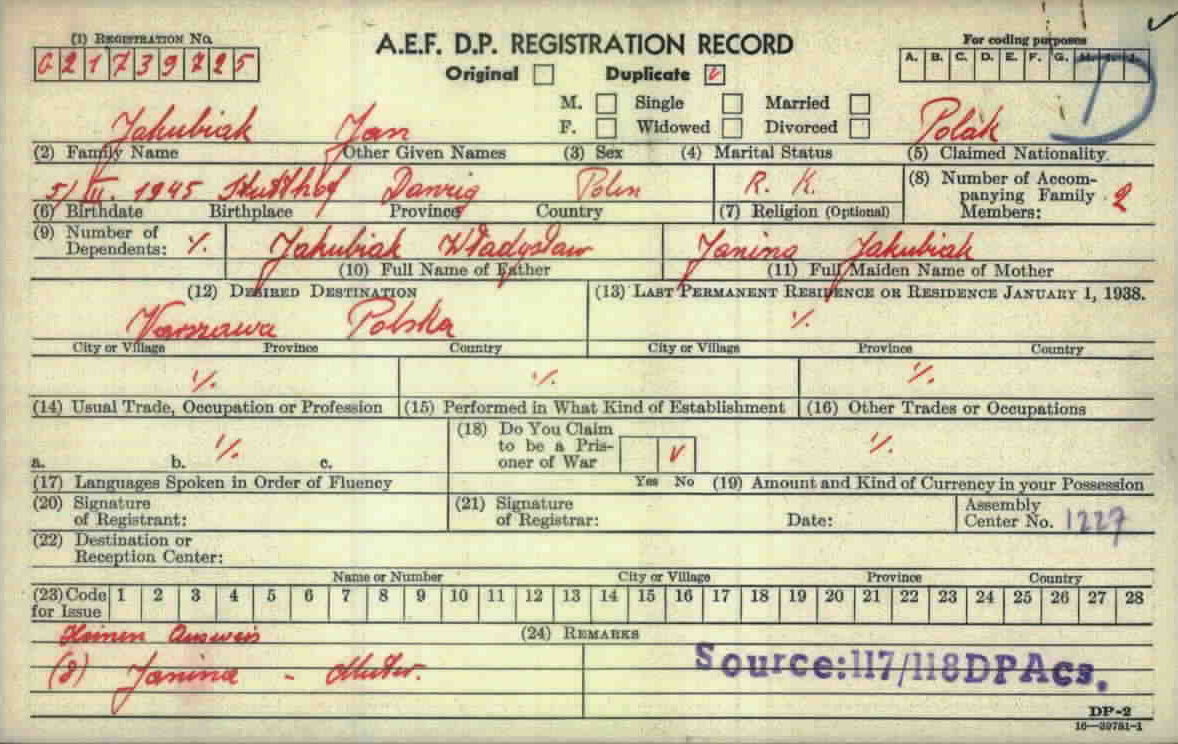 (1) Registration No.
G21739725
A.E.F. D.P. REGISTRATION RECORD
Original Duplicate V
For coding purposes
A. B. C. D. E. F. G. H. I. J.
D
M. Single Married
F. Widowed Divorced
Jakubiak Jan Polak
(2) Family Name Other Given Names (3) Sex (4) Marital Status (5) Claimed Nationality.
5/III. 1945 Stutthof Danzig Polen R. K.
(8) Number of Accompanying Family Members: 2
(6) Birthdate Birthplace Province Country (7) Religion (Optional)
(9) Number of Dependents: ·/.
Jakubiak Władysław Janina Jakubiak
(10) Full Name of Father (11) Full Maiden Name of Mother
(12) Desired Destination (13) Last Permanent Residence or Residence January 1, 1938.
Warszawa Polska ·/.
City or Village Province Country City or Village Province Country
·/. ·/. ·/.
(14) Usual Trade, Occupation or Profession (15) Performed in What Kind of Establishment (16) Other Trades or Occupations
a. b. ·/. c.
(18) Do You Claim to be a Prisoner of War V ·/.
(17) Languages Spoken in Order of Fluency Yes No (19) Amount and Kind of Currency in your Possession
(20) Signature of Registrant: (21) Signature of Registrar: Date: Assembly Center No. 1227
(22) Destination or Reception Center:
Name or Number City or Village Province Country
(23) Code for Issue 1 2 3 4 5 6 7 8 9 10 11 12 13 14 15 16 17 18 19 20 21 22 23 24 25 26 27 28
Keinen Ausweis (24) Remarks
(8) Janina - Mutter.
Source: 117/118 DPACS.
DP-2
16—39781-1